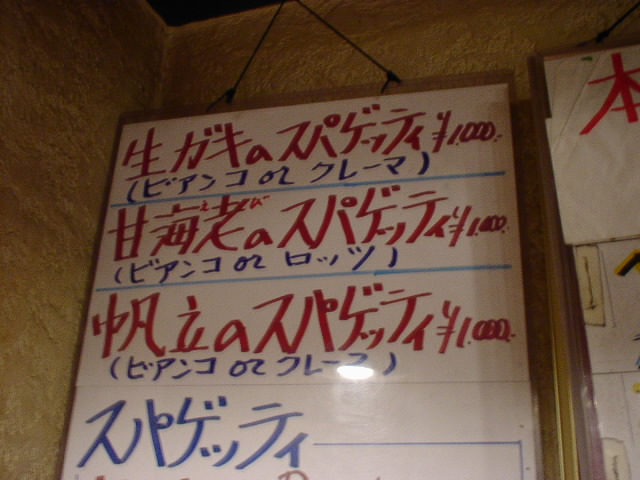 生ガキのスパゲッティ ¥1.000.
(ビアンコ or クレーマ)
甘海老のスパゲッティ ¥1.000.
えび
(ビアンコ or ロッソ)
帆立のスパゲッティ ¥1.000.
(ビアンコ or クレーマ)
スパゲッティ
本